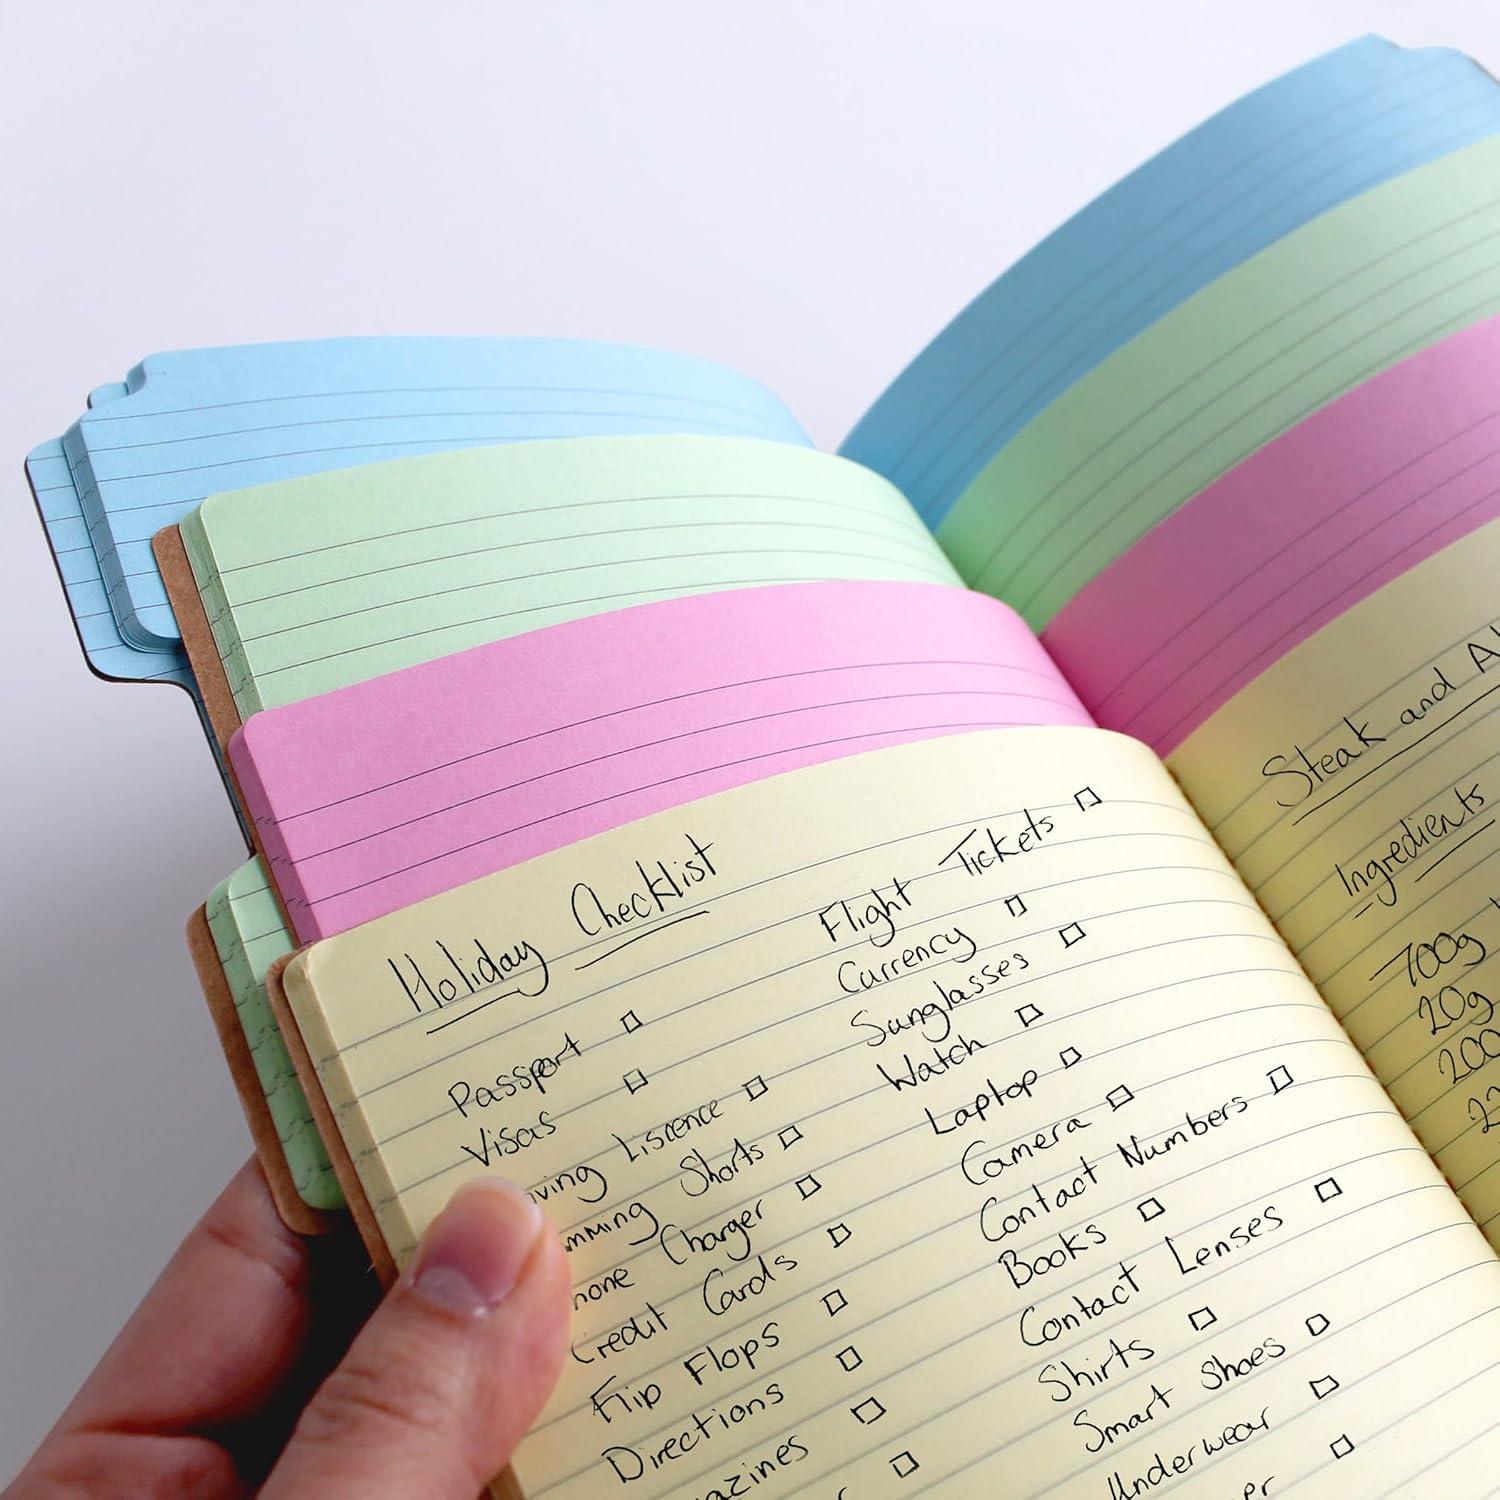 Holiday Checklist
Passport
Visas
Liscence
Shorts
Charger
Credit Cards
Flip Flops
Directions
Flight Tickets
Currency
Sunglasses
Watch
Laptop
Camera
Contact Numbers
Books
Contact Lenses
Shirts
Smart Shoes
Underwear
Steak and
Ingredients
700g
20g
200